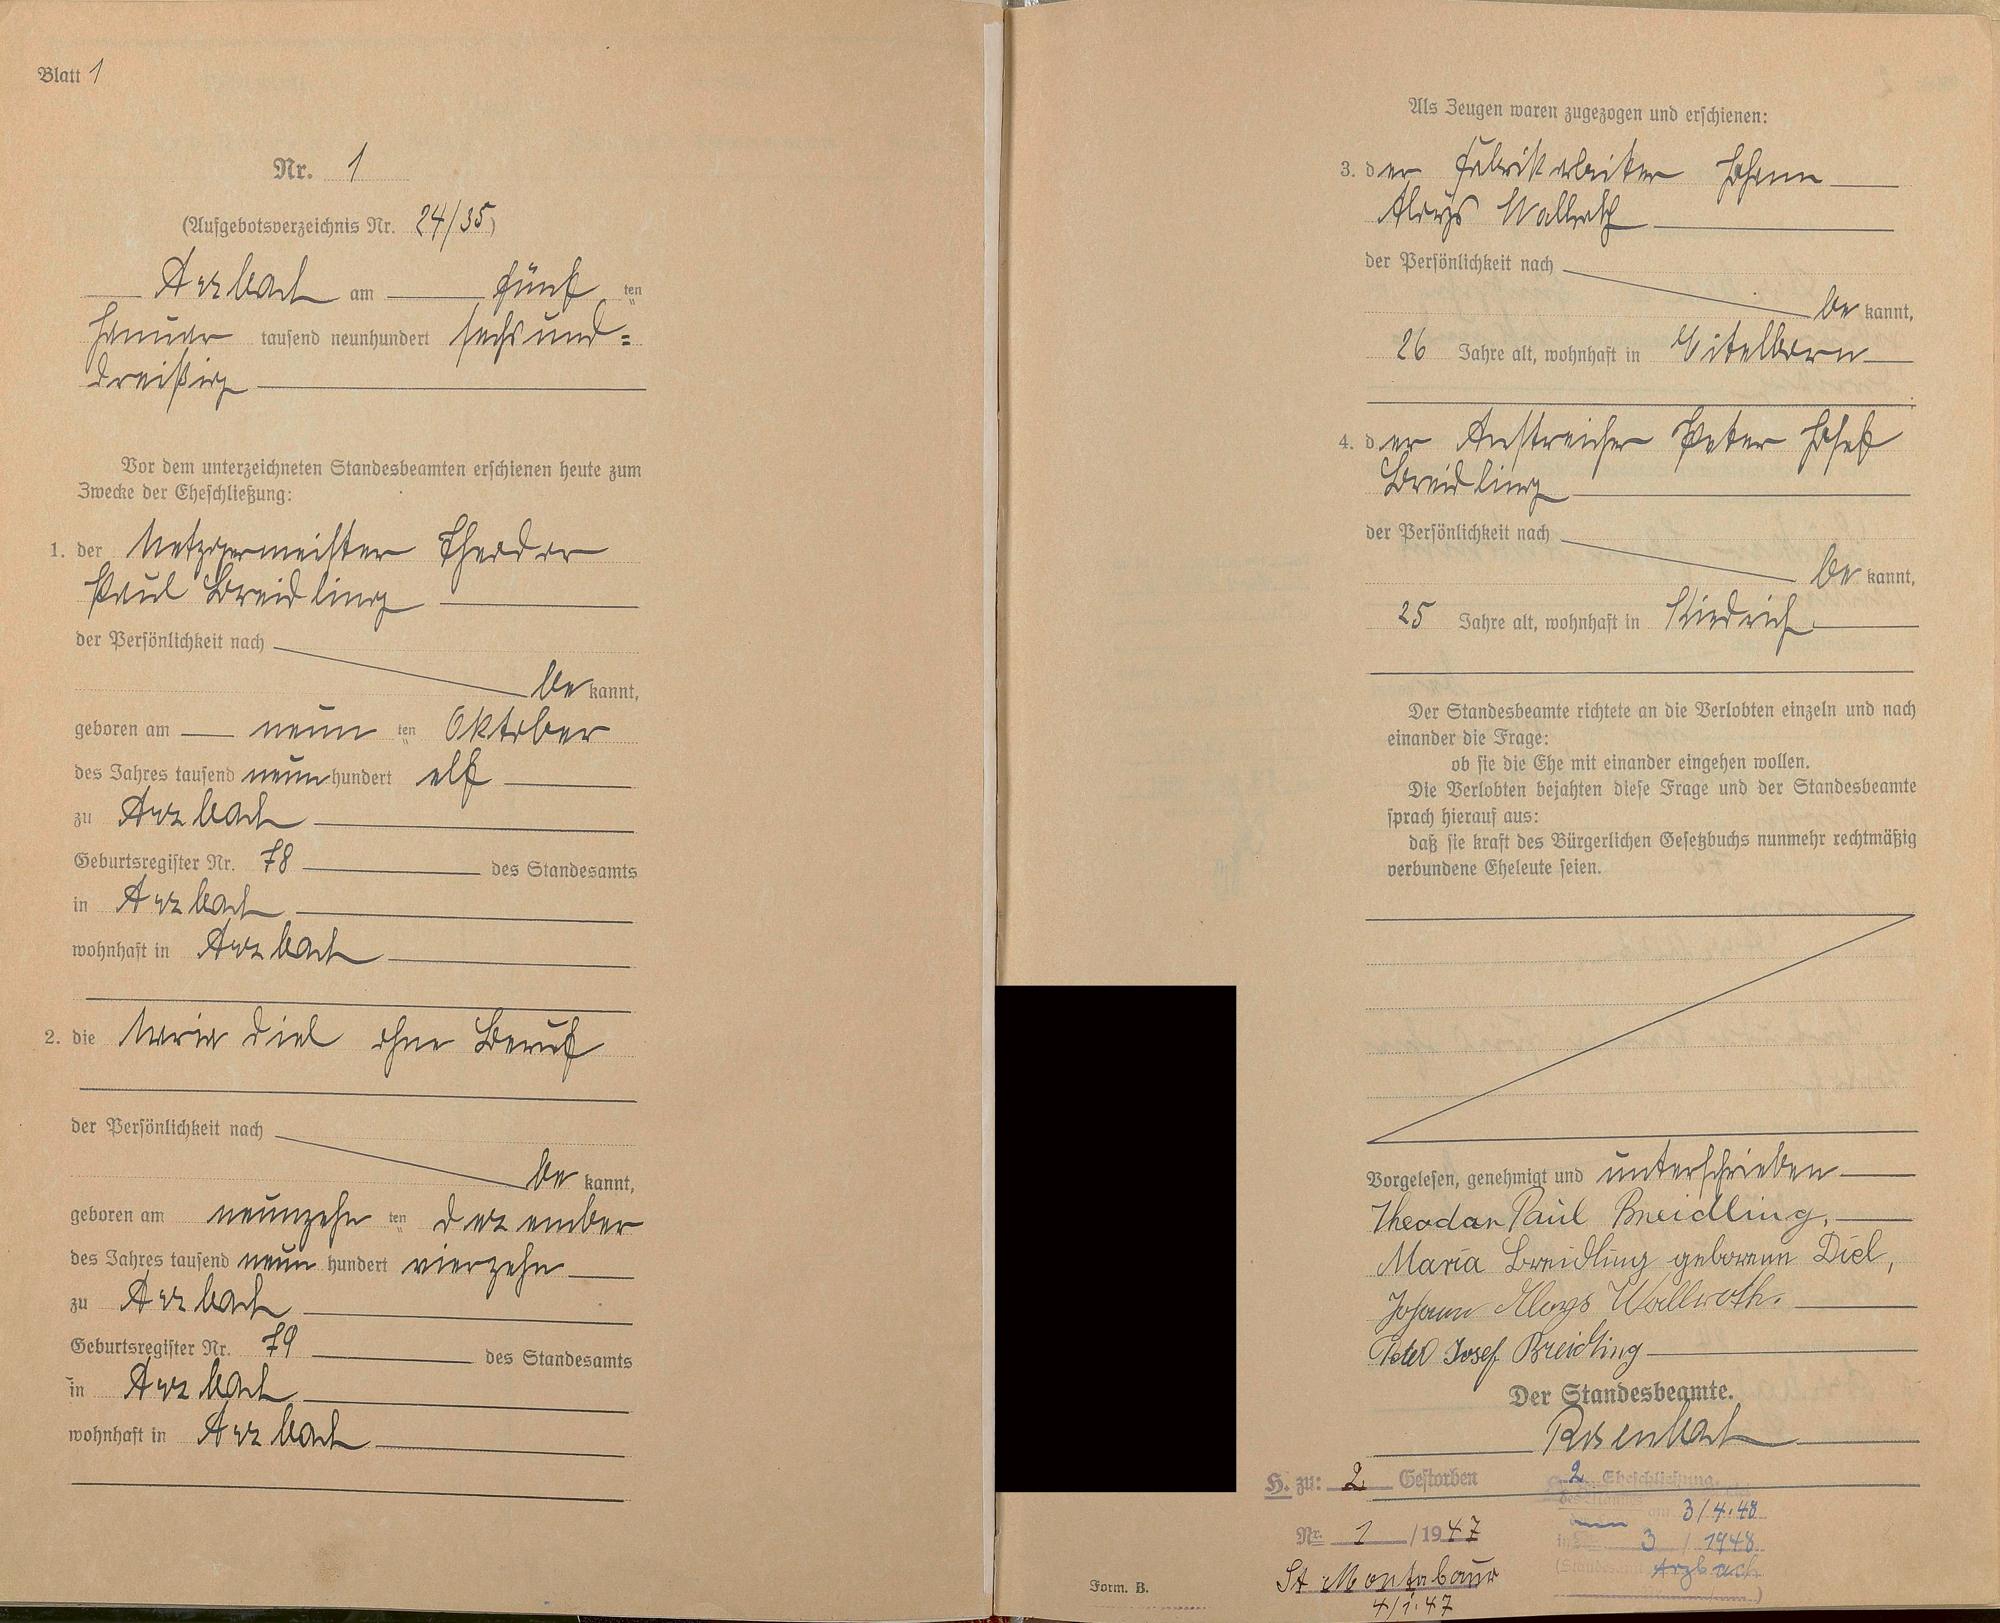 Blatt 1
Nr. 1
(Aufgebotsverzeichnis Nr. 24/35)
Arzbach am fünf ten
Januar tausend neunhundert sechsund=
dreißig
Vor dem unterzeichneten Standesbeamten erschienen heute zum
Zwecke der Eheschließung:
1. der Metzgermeister Theodor
Paul Breidling
der Persönlichkeit nach
be kannt,
geboren am neun ten Oktober
des Jahres tausend neun hundert elf
zu Arzbach
Geburtsregister Nr. 78 des Standesamts
in Arzbach
wohnhaft in Arzbach
2. die Maria Diel ohne Beruf
der Persönlichkeit nach
be kannt,
geboren am neunzehn ten Dezember
des Jahres tausend neun hundert vierzehn
zu Arzbach
Geburtsregister Nr. 79 des Standesamts
in Arzbach
wohnhaft in Arzbach
Als Zeugen waren zugezogen und erschienen:
3. der Fabrikarbeiter Johann
Aloys Wallroth
der Persönlichkeit nach
be kannt,
26 Jahre alt, wohnhaft in Eitelborn
4. der Anstreicher Peter Josef
Breidling
der Persönlichkeit nach
be kannt,
25 Jahre alt, wohnhaft in Kiedrich
Der Standesbeamte richtete an die Verlobten einzeln und nach
einander die Frage:
ob sie die Ehe mit einander eingehen wollen.
Die Verlobten bejahten diese Frage und der Standesbeamte
sprach hierauf aus:
daß sie kraft des Bürgerlichen Gesetzbuchs nunmehr rechtmäßig
verbundene Eheleute seien.
Vorgelesen, genehmigt und unterschrieben
Theodor Paul Breidling,
Maria Breidling geborene Diel,
Johann Aloys Wallroth.
Peter Josef Breidling
Der Standesbeamte.
Rosenbach
H. zu: 2 Gestorben
Nr. 1 /1947
St Montabaur
4/1.47
2. Eheschließung
des Mannes am 3/4.48
in 3 / 1948
(Standesamt Arzbach
Form. B.